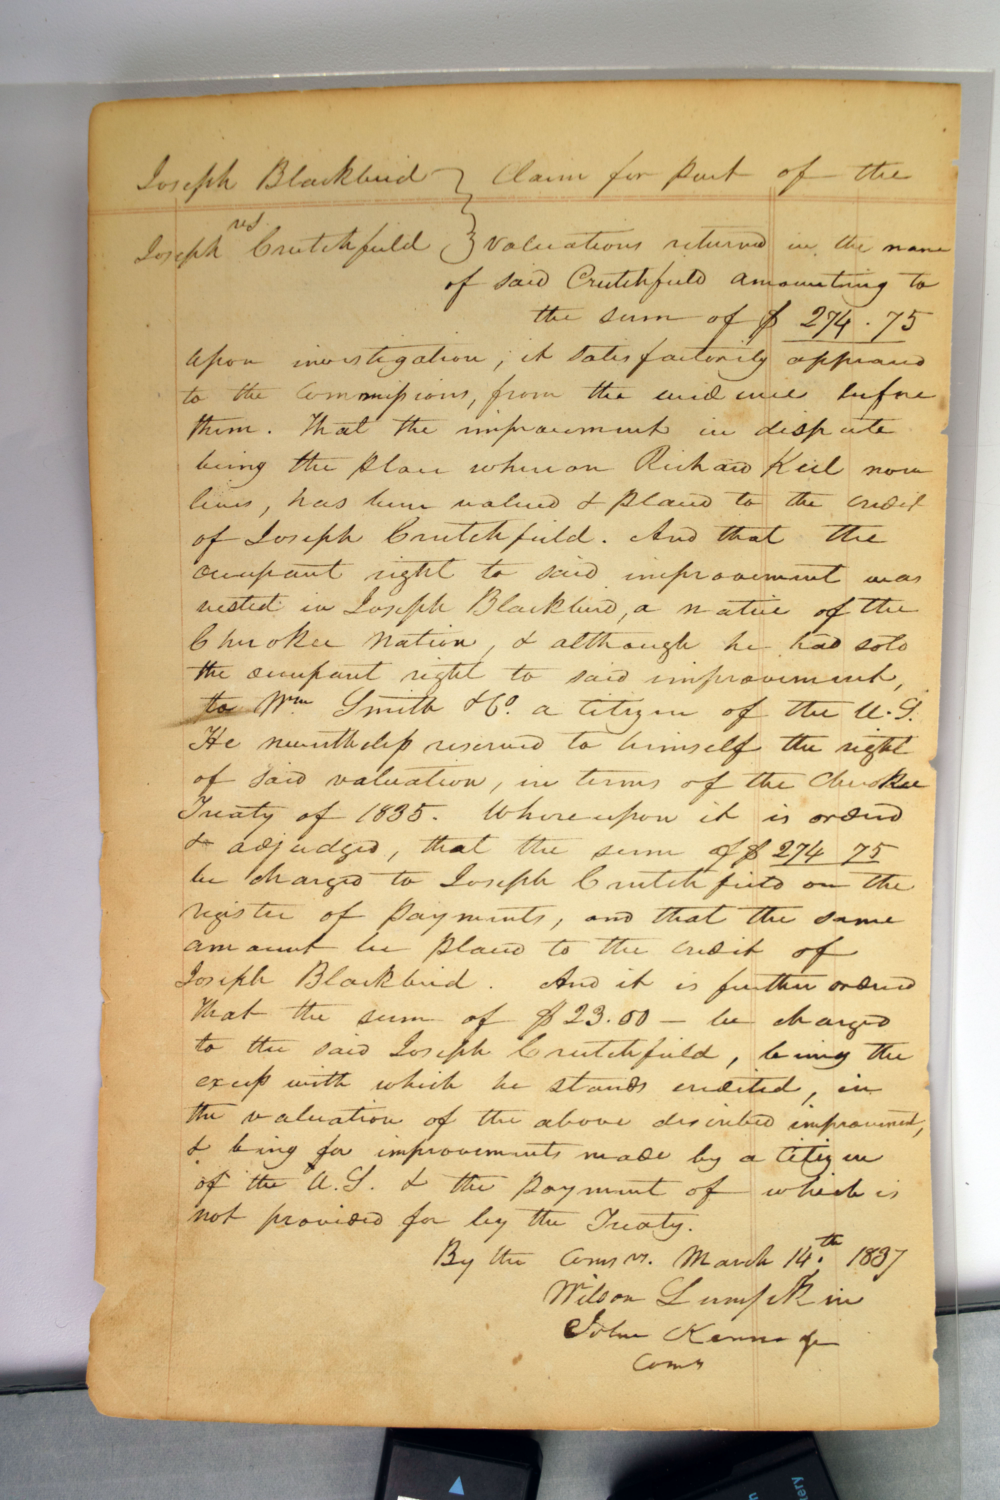 Joseph Blackbird } Claim for Part of the
vs
Joseph Crutchfield } valuations returned in the name
of said Crutchfield amounting to
the sum of $ 274.75
Upon investigation, it satisfactorily appeared
to the Commissioners, from the evidence before
them. That the improvement in dispute
being the place whereon Richard Keil now
lives, has been valued & placed to the credit
of Joseph Crutchfield. And that the
occupant right to said improvement was
vested in Joseph Blackbird, a native of the
Cherokee Nation, & although he had sold
the occupant right to said improvement,
to Wm Smith & Co. a citizen of the U.S.
He nevertheless reserved to himself the right
of said valuation, in terms of the Cherokee
Treaty of 1835. Whereupon it is ordered
& adjudged, that the sum of $ 274 75
be charged to Joseph Crutchfield on the
register of Payments, and that the same
amount be placed to the credit of
Joseph Blackbird. And it is further ordered
that the sum of $23.00 — be charged
to the said Joseph Crutchfield, being the
excess with which he stands credited, in
the valuation of the above described improvement,
& being for improvements made by a citizen
of the U.S. & the payment of which is
not provided for by the Treaty.
By the Comrs. March 14th. 1837
Wilson Lumpkin
John Kennedy
Comrs